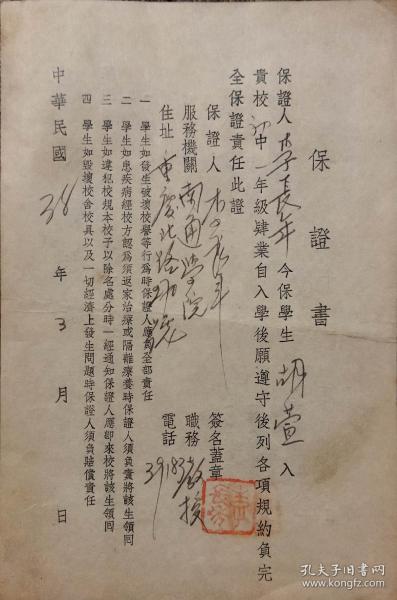 保證書
保證人李長年今保學生胡萱入
貴校初中一年級肄業自入學後願遵守後列各項規約負完
全保證責任此證
保證人李長年 簽名蓋章
服務機關南通學院 職務教授
住址重慶北路 電話39183
一 學生如發生破壞校譽等行爲時保證人應負全部責任
二 學生如患疾病經校方認爲須返家治療或隔離療養時保證人須負責將該生領回
三 學生如違犯校規本校予以除名處分時一經通知保證人應卽來校將該生領回
四 學生如毀壞校舍校具以及一切經濟上發生問題時保證人須負賠償責任
中華民國38年3月 日
孔夫子旧书网
www.kongfz.com